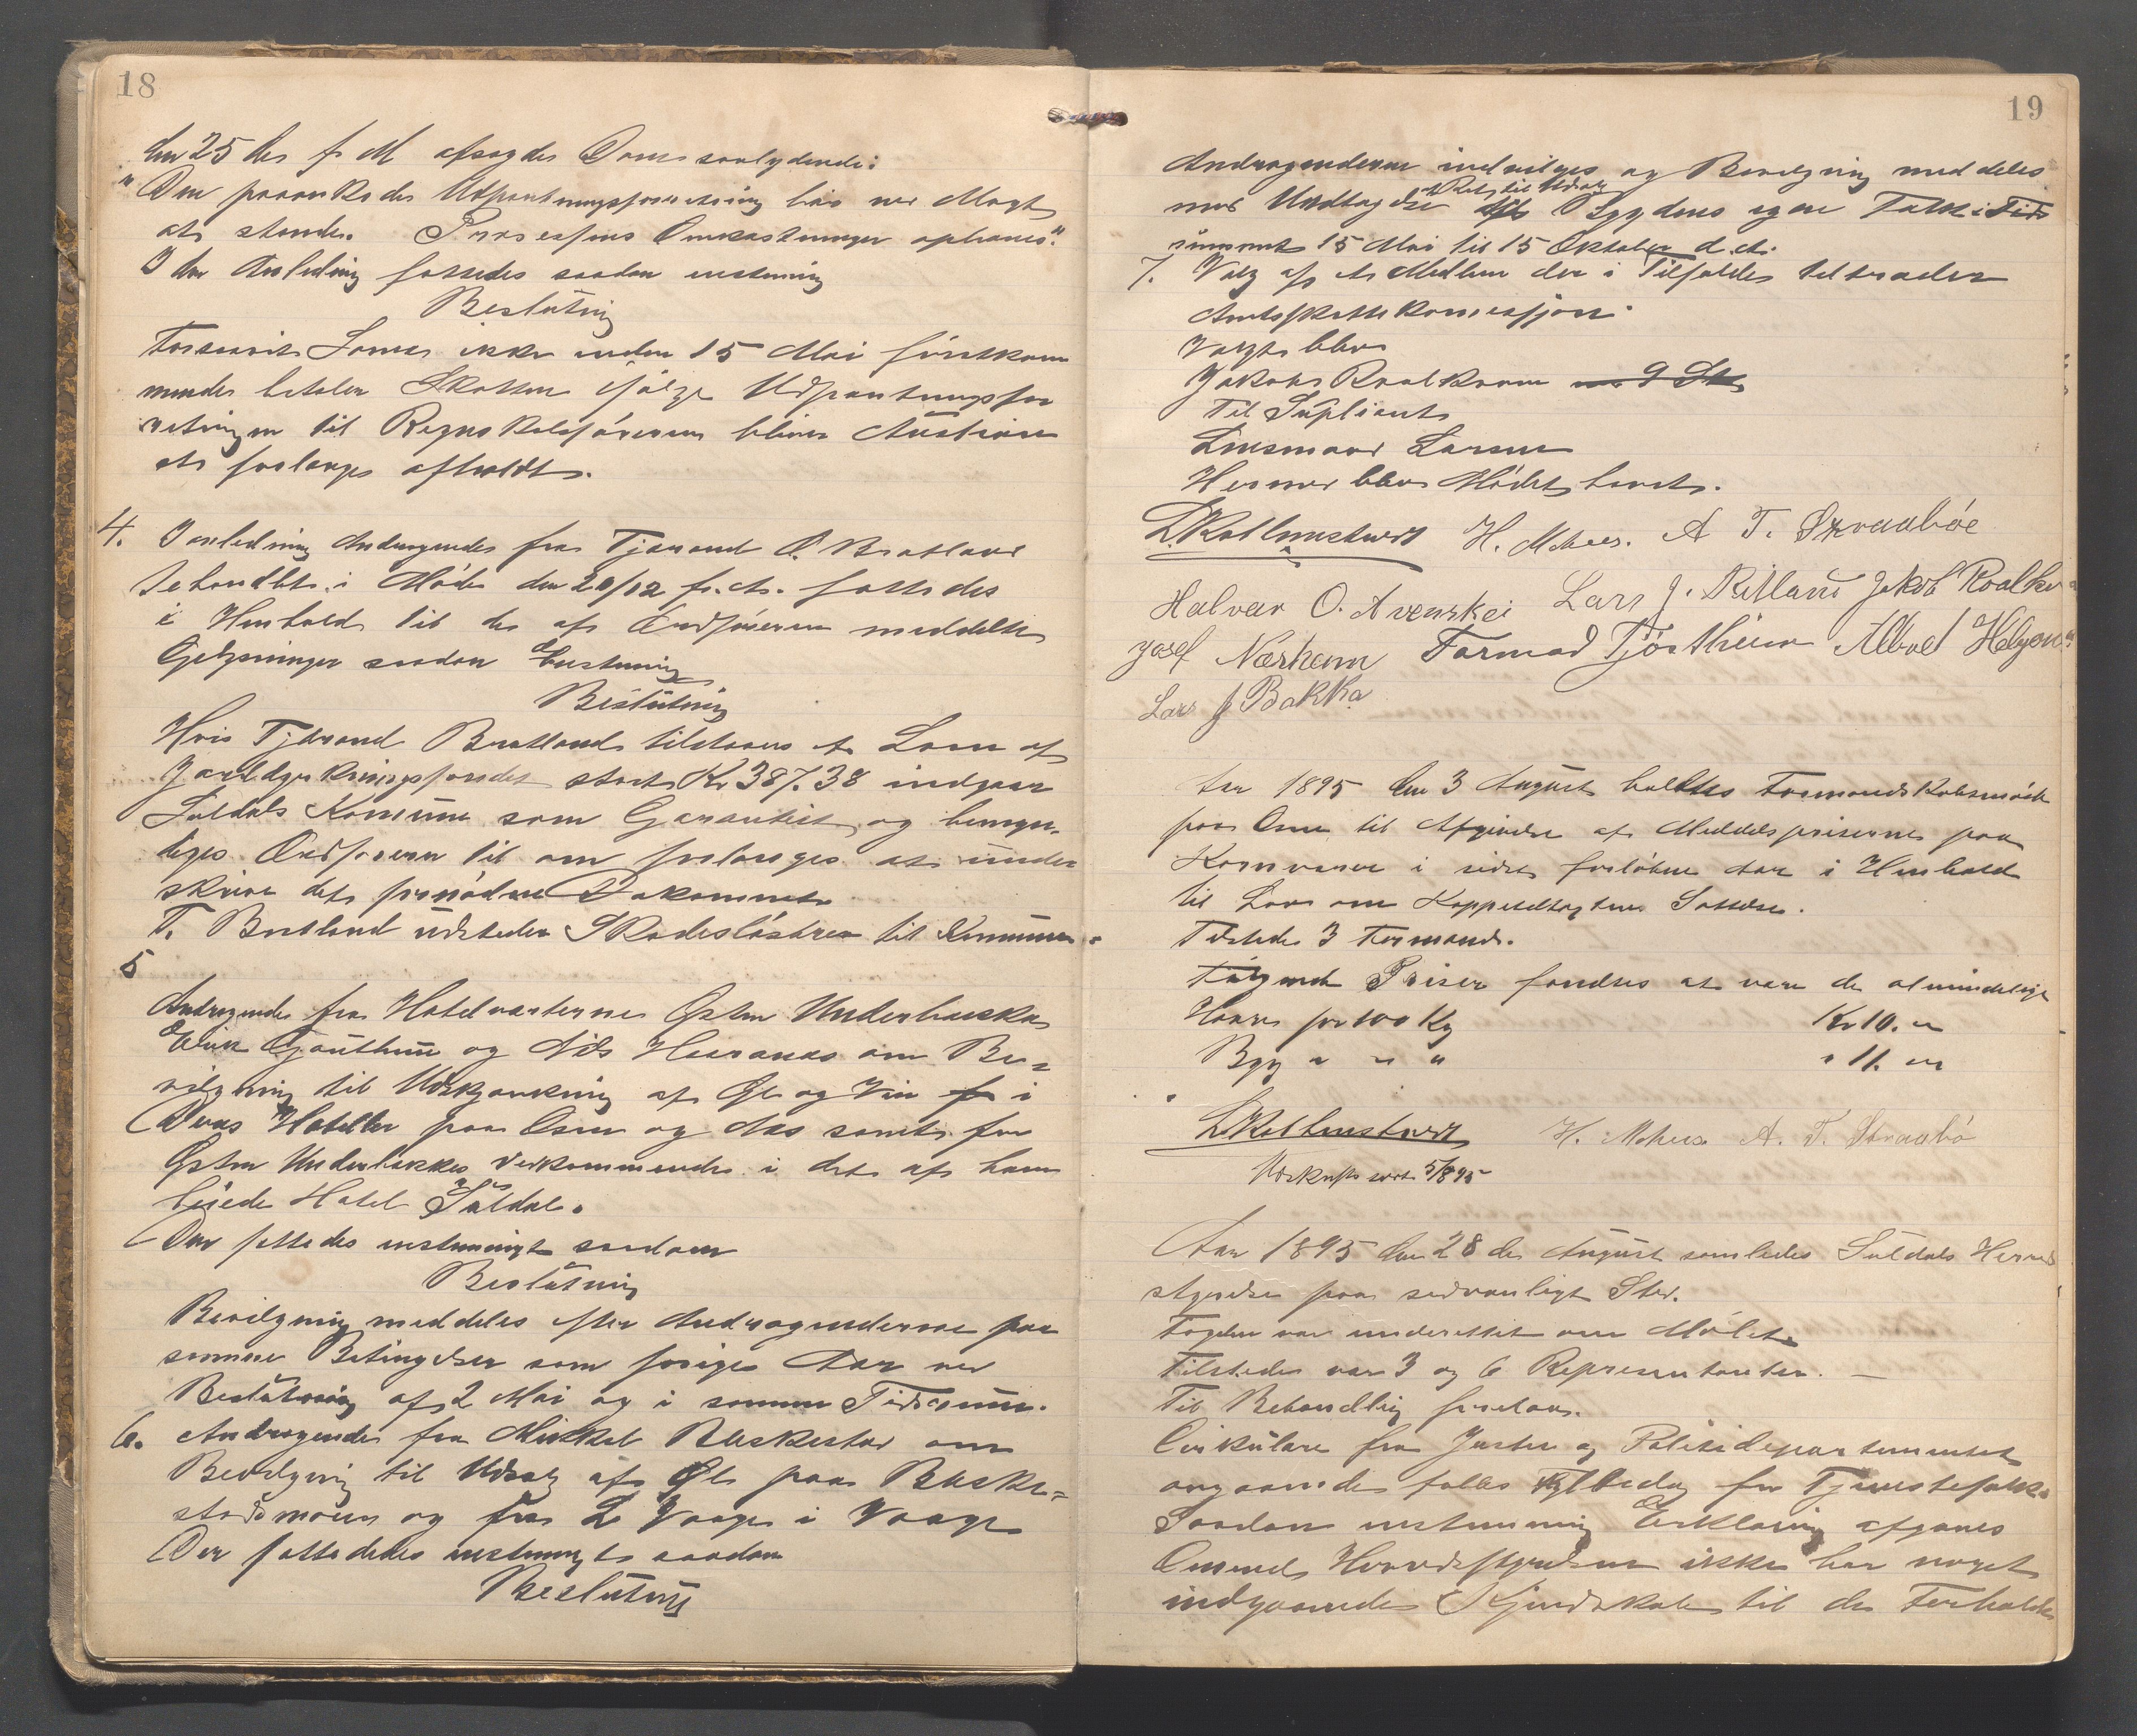 18
den 25 des f. M. afsagdes Dom saalydende:
"Den paaankede Udpantningsforretning bør ved Magt
at stande. Processens Omkostninger ophæves."
I den Anledning fattedes saadan enstemmig
Beslutning
Forsaavidt Lomes ikke inden 15 Mai førstkom
mende betaler Skatten ifølge Udpantningsfor
retningen til Regnskabsføreren bliver Auktion
at forlange afholdt.
4. I anledning Andragende fra Tjerand O. Bratland
behandlet i Møde den 20/12 f. A. fattedes
i Henhold til de af Ordføreren meddelte
Oplysninger saadan Enstemmig
Beslutning
Hvis Tjerand Bratland tilstaaes et Laan af
Jorddyrkningsfondet stort Kr 387.38 indgaar
Suldals Komune som Garantist og bemyn-
diges Ordføreren til om forlanges at under
skrive det fornødne Dokument
T. Bratland udsteder Skadesløsbrev til Kommunen.
5
Andragende fra Hotelværterne Østen Underbakke
Eivin Gauthun og Nils Hesranes om Be-
vilgning til Udskjænkning af Øl og Vin i
Deres Hoteller paa Osen og Næs samt for
Østen Underbakkes Vedkommende i det af ham
leiede Hotel Suldal.
Der fattedes enstemmigt saadan
Beslutning
Bevilgning meddeles efter Andragenderne paa
samme Betingelser som forige Aar ved
Beslutning af 2 Mai og i samme Tidsrum.
6. Andragende fra Mikkel Bleskestad om
Bevilgning til Udsalg af Øl paa Bleske-
stadmoen og fra L. Vaage i Vaage
Der fattedes enstemmigt saadan
Beslutning
19
Andragenderne indvilges og Bevilgning meddeles
med Undtagelse Ret til Udsalg til Bygdens egne Folk i Tids
rummet 15 Mai til 15 Oktober d. A.
7. Valg af et Medlem der i Tilfælde tiltræder
Amtsskattekomissjon.
Valgt blev
Jakob Roalkvam
Til Supliant
Lensmand Larsen
Hermed blev Mødet hævet.
L Kolbenstvedt H. Mehus. A T. Straabøe
Halvar O. Avenskei Lars J. Ritland Jakob Roalkva
Josef Nærheim Tormod Tjøstheim Albret Helgenæs
Lars J Bakka
Aar 1895 den 3 August holdtes Formandskabsmøde
paa Osen til Afgivelse af Middelspriserne paa
Kornvarer i sidst forløbne Aar i Henhold
til Lov om Kapitelstaxtens Sættelse.
Tilstede 3 Formænd.
Følgende Priser fandtes at være de almindelige
Havre pr 100 Kg Kr 10. "
Byg " " " " 11. "
L Kolbenstvedt H. Mehus A. T. Straabø
Udskrift sendt 5/8 95
Aar 1895 den 28 des August samledes Suldals Herreds
styrelse paa sedvanligt Sted.
Fogden var underettet om Mødet.
Tilstede var 3 og 6 Representanter. —
Til Behandling foretoges.
Cirkulære fra Justis og Politidepartementet
angaaende fælles Flyttedag for Tjenestefolk.
Saadan enstemmig Erklæring afgaves
Omend Herredsstyrelsen ikke har noget
indgaaende Kjendskab til de Forholde